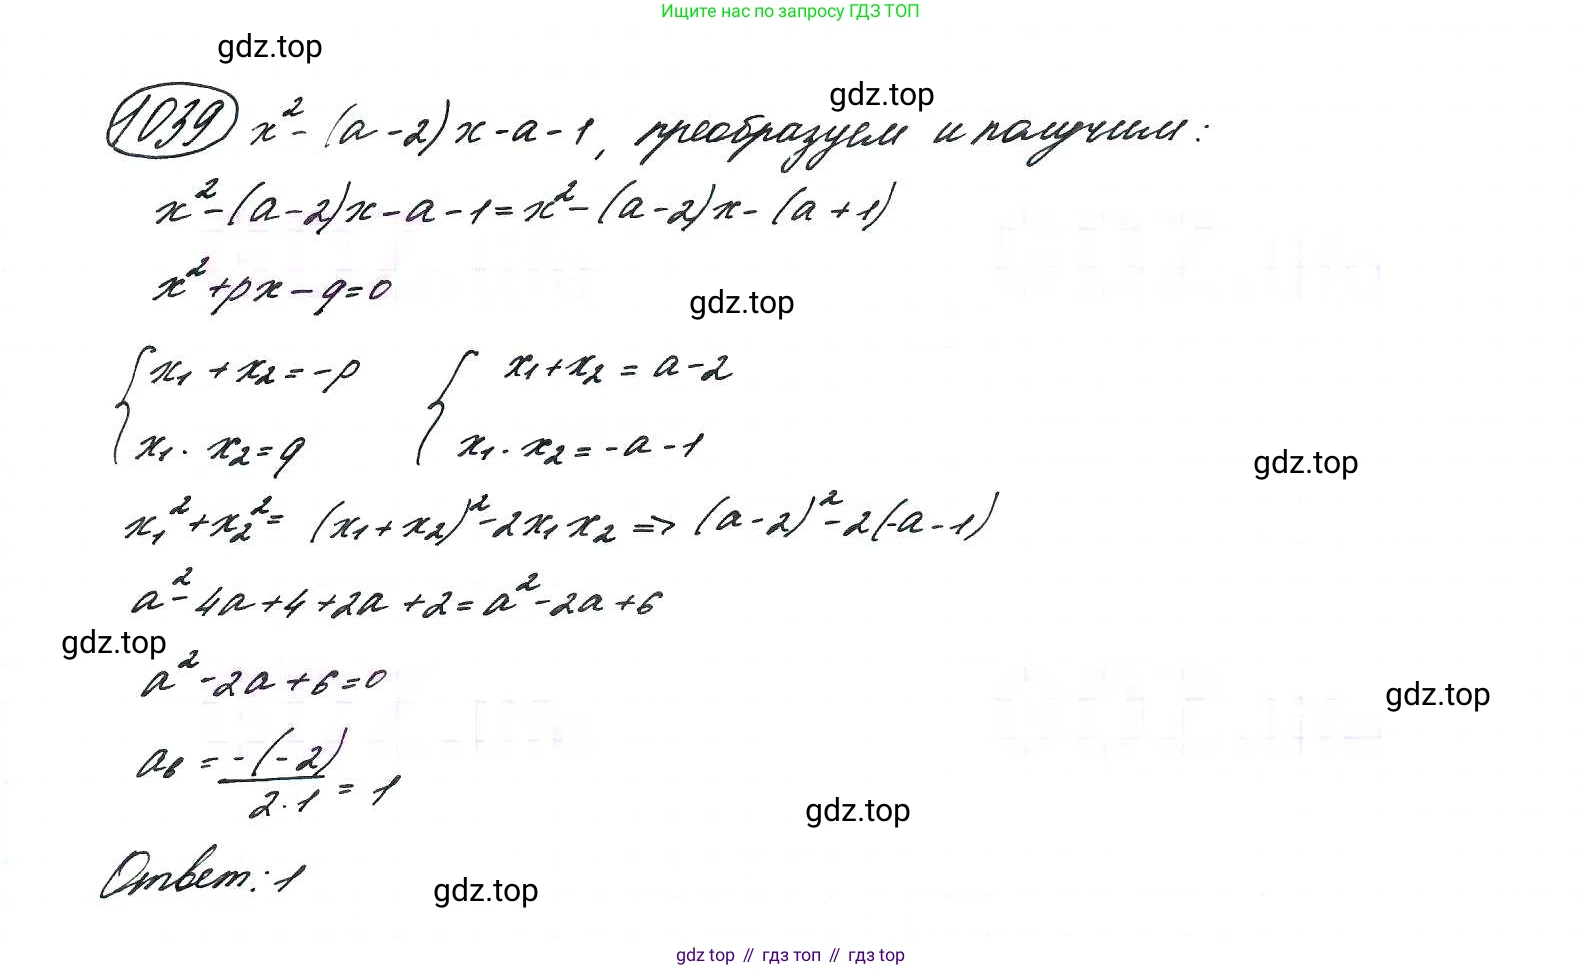 Ищите нас по запросу ГДЗ ТОП
gdz.top
gdz.top
1039 x² - (a - 2) x - a - 1, преобразуем и получим:
x² - (a - 2)x - a - 1 = x² - (a - 2)x - (a + 1)
x² + px - q = 0
gdz.top
{ x₁ + x₂ = -p { x₁ + x₂ = a - 2
x₁ · x₂ = q x₁ · x₂ = -a - 1
gdz.top
x₁² + x₂² = (x₁ + x₂)² - 2x₁x₂ => (a - 2)² - 2(-a - 1)
a² - 4a + 4 + 2a + 2 = a² - 2a + 6
gdz.top
a² - 2a + 6 = 0
gdz.top
aв = -(-2) / 2·1 = 1
gdz.top
Ответ: 1
gdz.top
gdz top // гдз топ // гдз top